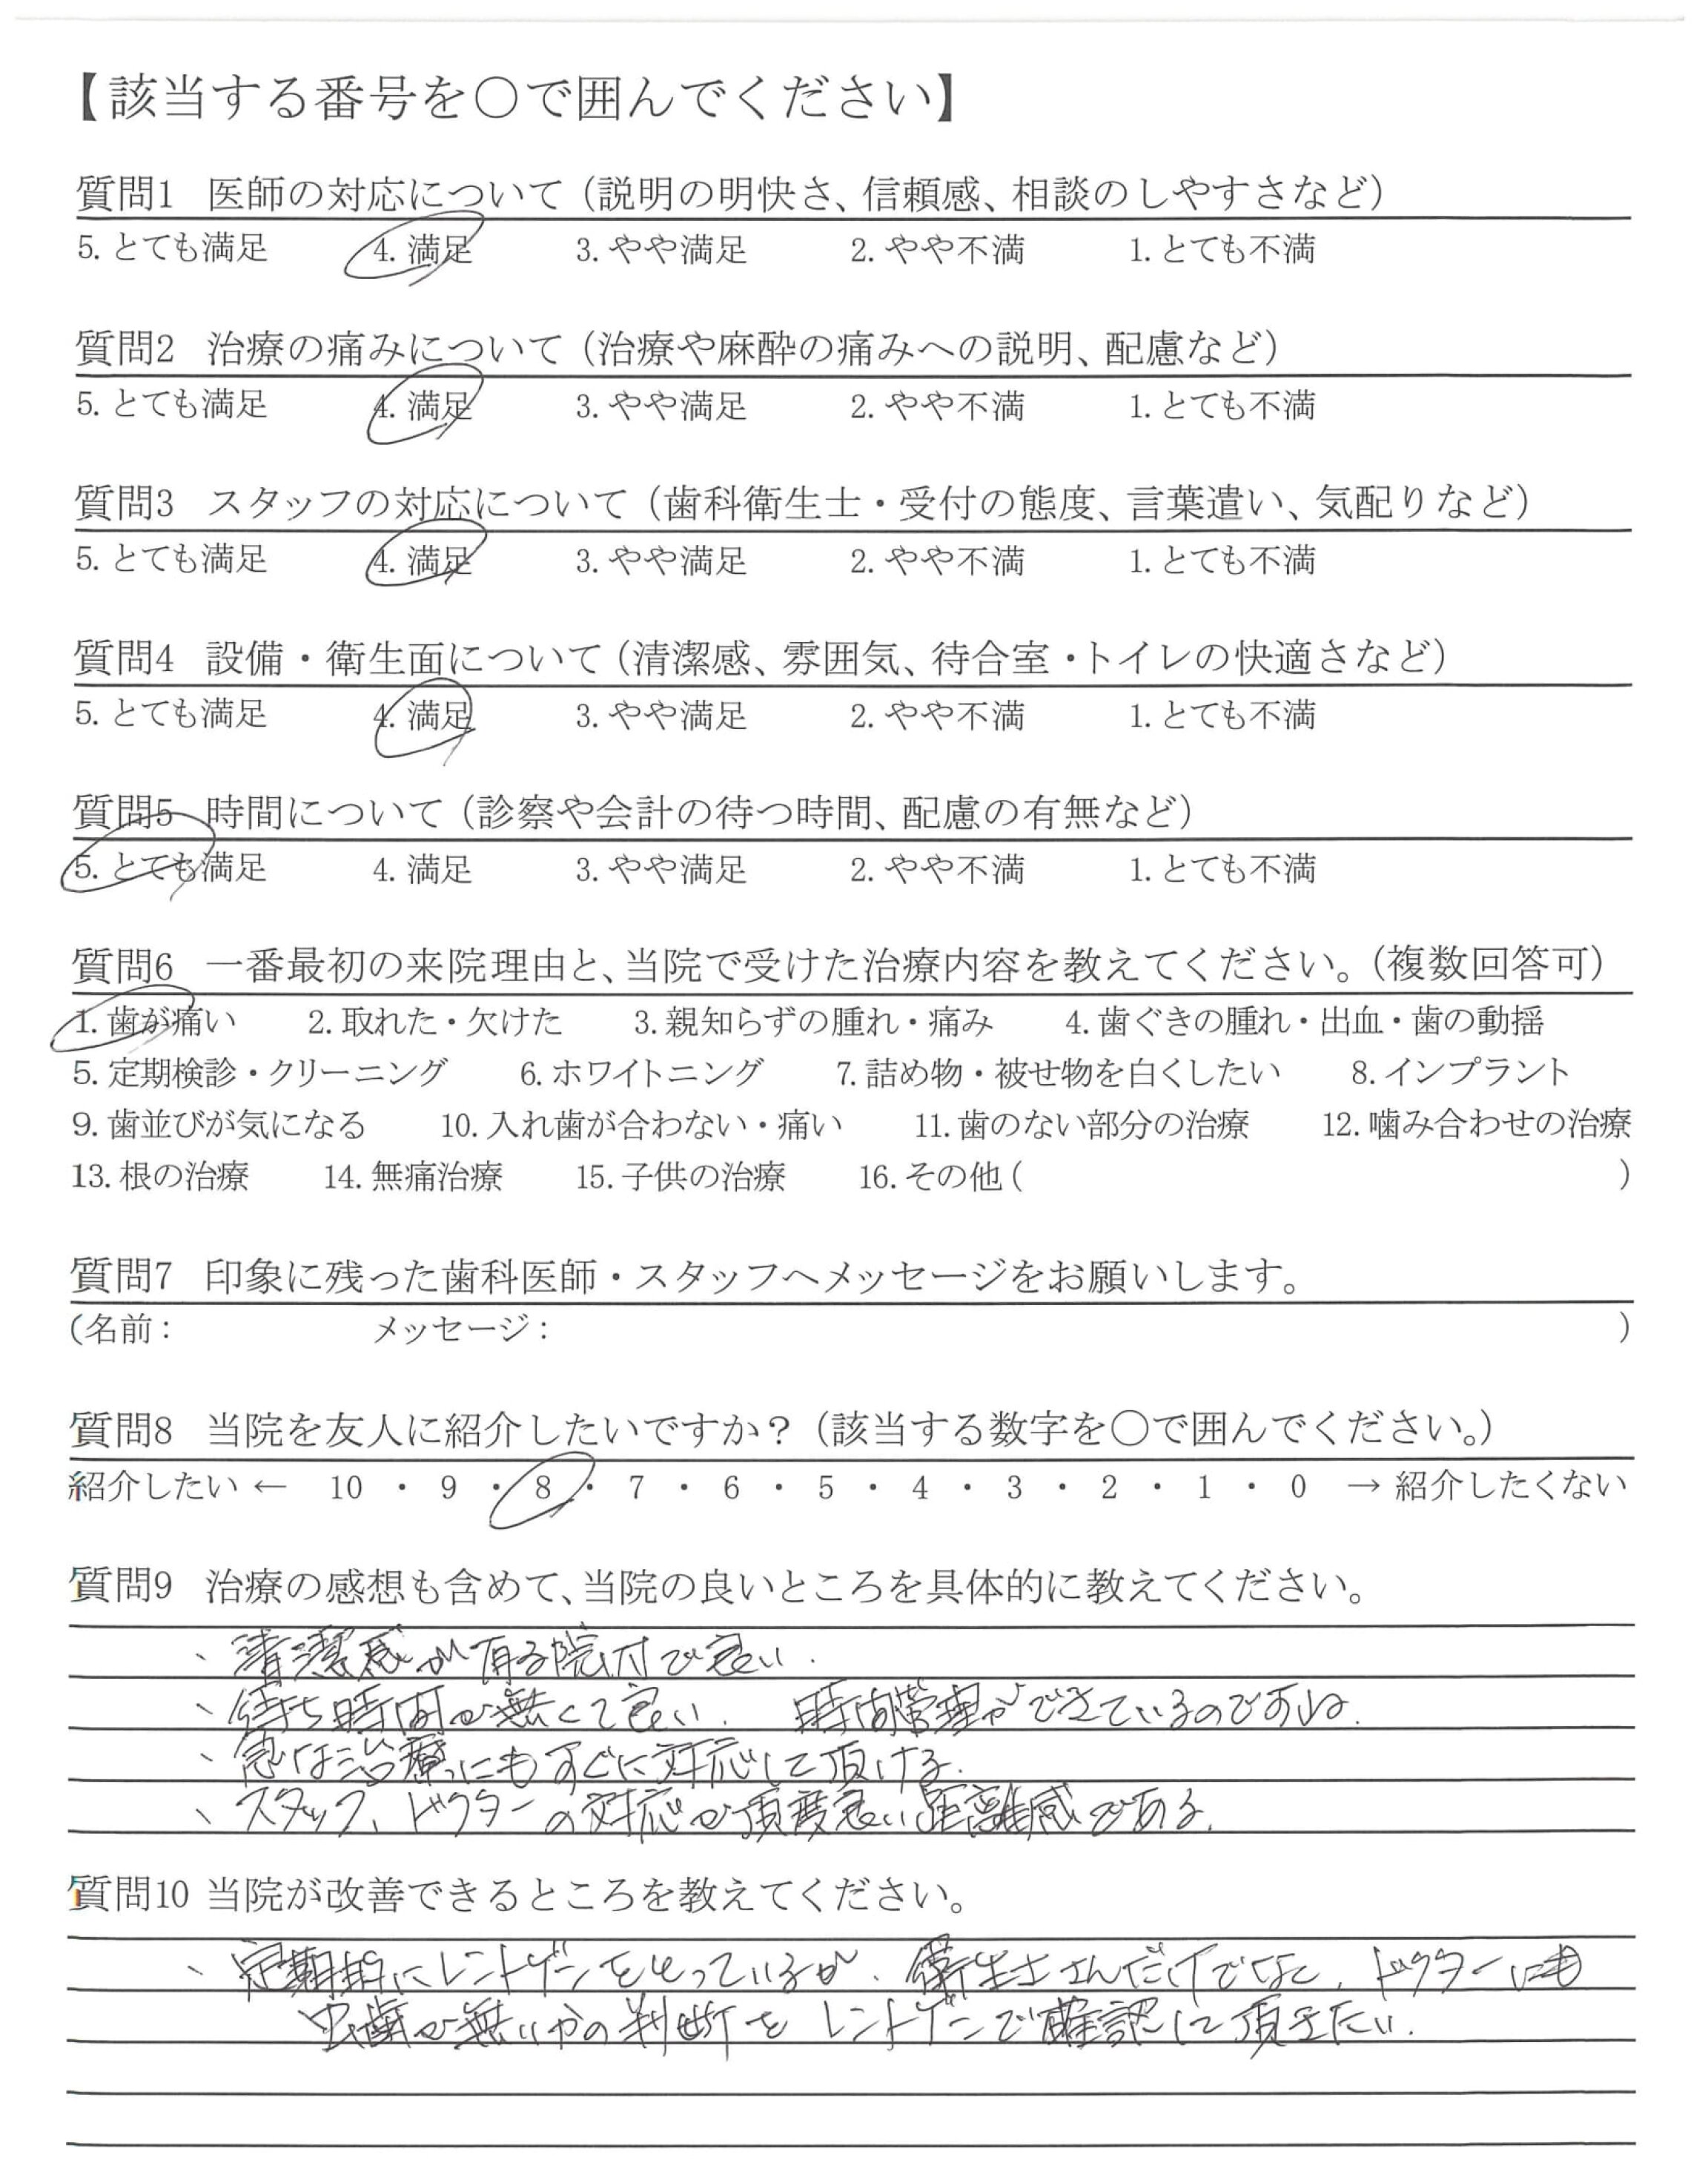 【該当する番号を○で囲んでください】
質問1 医師の対応について（説明の明快さ、信頼感、相談のしやすさなど）
5. とても満足 4. 満足 3. やや満足 2. やや不満 1. とても不満
質問2 治療の痛みについて（治療や麻酔の痛みへの説明、配慮など）
5. とても満足 4. 満足 3. やや満足 2. やや不満 1. とても不満
質問3 スタッフの対応について（歯科衛生士・受付の態度、言葉遣い、気配りなど）
5. とても満足 4. 満足 3. やや満足 2. やや不満 1. とても不満
質問4 設備・衛生面について（清潔感、雰囲気、待合室・トイレの快適さなど）
5. とても満足 4. 満足 3. やや満足 2. やや不満 1. とても不満
質問5 時間について（診察や会計の待つ時間、配慮の有無など）
5. とても満足 4. 満足 3. やや満足 2. やや不満 1. とても不満
質問6 一番最初の来院理由と、当院で受けた治療内容を教えてください。（複数回答可）
1. 歯が痛い 2. 取れた・欠けた 3. 親知らずの腫れ・痛み 4. 歯ぐきの腫れ・出血・歯の動揺
5. 定期検診・クリーニング 6. ホワイトニング 7. 詰め物・被せ物を白くしたい 8. インプラント
9. 歯並びが気になる 10. 入れ歯が合わない・痛い 11. 歯のない部分の治療 12. 噛み合わせの治療
13. 根の治療 14. 無痛治療 15. 子供の治療 16. その他 ( )
質問7 印象に残った歯科医師・スタッフへメッセージをお願いします。
(名前： メッセージ： )
質問8 当院を友人に紹介したいですか？（該当する数字を○で囲んでください。）
紹介したい ← 10 ・ 9 ・ 8 ・ 7 ・ 6 ・ 5 ・ 4 ・ 3 ・ 2 ・ 1 ・ 0 → 紹介したくない
質問9 治療の感想も含めて、当院の良いところを具体的に教えてください。
、清潔感が有る院内で良い.
、待ち時間が無くて良い. 時間管理ができているのですね.
、急な治療にもすぐに対応して頂ける.
、スタッフ、ドクターの対応が丁度良い距離感である.
質問10 当院が改善できるところを教えてください。
、定期的にレントゲンをとっているが、衛生士さんだけでなく、ドクターにも
虫歯が無いかの判断をレントゲンで確認して頂きたい.